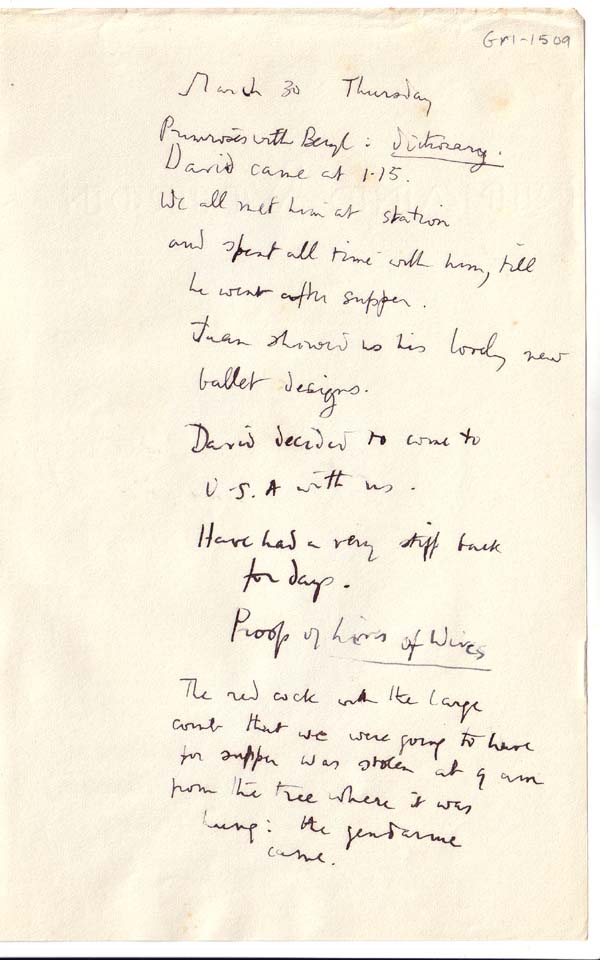 Gr1-1509
March 30 Thursday
Primroses with Beryl: dictionary.
David came at 1·15.
We all met him at station
and spent all time with him, till
he went after supper.
Juan showed us his lovely new
ballet designs.
David decided to come to
U.S.A with us.
Have had a very stiff back
for days.
Proofs of Lives of Wives
The red cock with the large
comb that we were going to have
for supper was stolen at 9 am
from the tree where it was
hung: the gendarme
came.